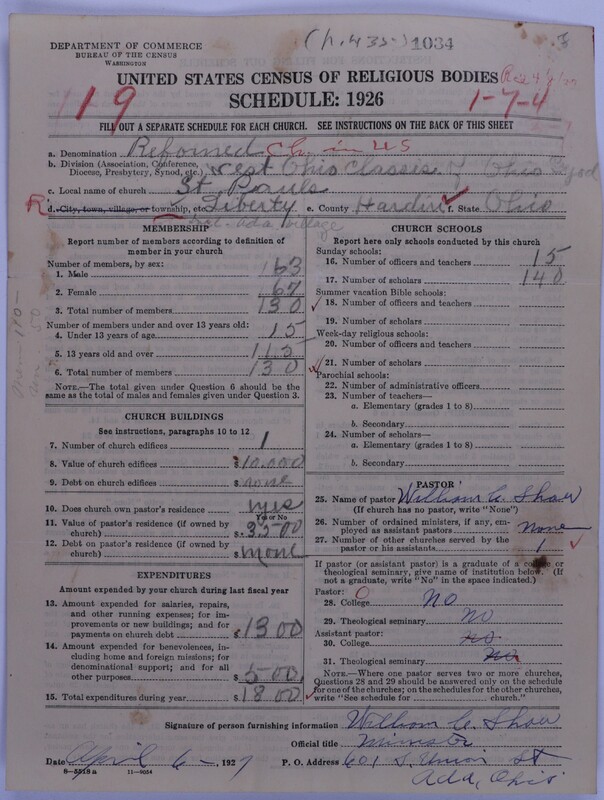 (Ch. 435-) 1034 3
DEPARTMENT OF COMMERCE
BUREAU OF THE CENSUS
WASHINGTON
UNITED STATES CENSUS OF RELIGIOUS BODIES
SCHEDULE: 1926
119
1-7-4
FILL OUT A SEPARATE SCHEDULE FOR EACH CHURCH. SEE INSTRUCTIONS ON THE BACK OF THIS SHEET
a. Denomination Reformed Ch. in U S
b. Division (Association, Conference, Diocese, Presbytery, Synod, etc.) West Ohio Classis of Ohio Synod
c. Local name of church St Pauls
R d. City, town, village, or township, etc. Liberty e. County Hardin f. State Ohio
Ada village
MEMBERSHIP
Report number of members according to definition of
member in your church
Number of members, by sex:
1. Male 63
2. Female 67
3. Total number of members 130
Number of members under and over 13 years old:
4. Under 13 years of age 15
5. 13 years old and over 115
6. Total number of members 130
NOTE.—The total given under Question 6 should be the
same as the total of males and females given under Question 3.
CHURCH BUILDINGS
See instructions, paragraphs 10 to 12
7. Number of church edifices 1
8. Value of church edifices $10,000
9. Debt on church edifices $none
10. Does church own pastor's residence yes
Yes or No
11. Value of pastor's residence (if owned by
church) $3500
12. Debt on pastor's residence (if owned by
church) $none
EXPENDITURES
Amount expended by your church during last fiscal year
13. Amount expended for salaries, repairs,
and other running expenses; for im-
provements or new buildings; and for
payments on church debt $1300
14. Amount expended for benevolences,
including home and foreign missions; for
denominational support; and for all
other purposes $500
15. Total expenditures during year $1800
CHURCH SCHOOLS
Report here only schools conducted by this church
Sunday schools:
16. Number of officers and teachers 15
17. Number of scholars 140
Summer vacation Bible schools:
18. Number of officers and teachers
19. Number of scholars
Week-day religious schools:
20. Number of officers and teachers
21. Number of scholars
Parochial schools:
22. Number of administrative officers
23. Number of teachers—
a. Elementary (grades 1 to 8)
b. Secondary
24. Number of scholars—
a. Elementary (grades 1 to 8)
b. Secondary
PASTOR
25. Name of pastor William C. Shaw
(If church has no pastor, write "None")
26. Number of ordained ministers, if any, em-
ployed as assistant pastors None
27. Number of other churches served by the
pastor or his assistants 1
If pastor (or assistant pastor) is a graduate of a college or
theological seminary, give name of institution below. (If
not a graduate, write "No" in the space indicated.)
Pastor: O
28. College No
29. Theological seminary No
Assistant pastor:
30. College No
31. Theological seminary No
NOTE.—Where one pastor serves two or more churches,
Questions 28 and 29 should be answered only on the schedule
for one of the churches; on the schedules for the other churches,
write "See schedule for church."
Signature of person furnishing information William C. Shaw
Official title Minister
Date April 6 —, 1927 P. O. Address 601 S. Union St
8—5518a 11—8054 Ada, Ohio